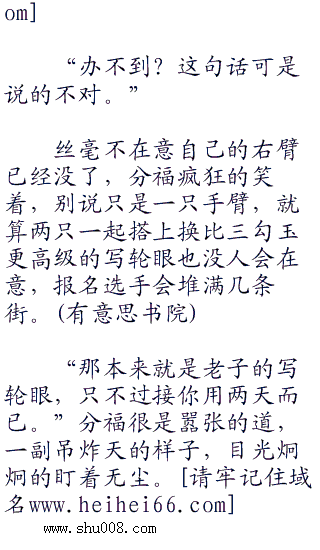 om]
“办不到？这句话可是
说的不对。”
丝毫不在意自己的右臂
已经没了，分福疯狂的笑
着，别说只是一只手臂，就
算两只一起搭上换比三勾玉
更高级的写轮眼也没人会在
意，报名选手会堆满几条
街。(有意思书院)
“那本来就是老子的写
轮眼，只不过接你用两天而
已。”分福很是嚣张的道，
一副吊炸天的样子，目光炯
炯的盯着无尘。[请牢记住域
名www.heihei66.com]
www.shu008.com